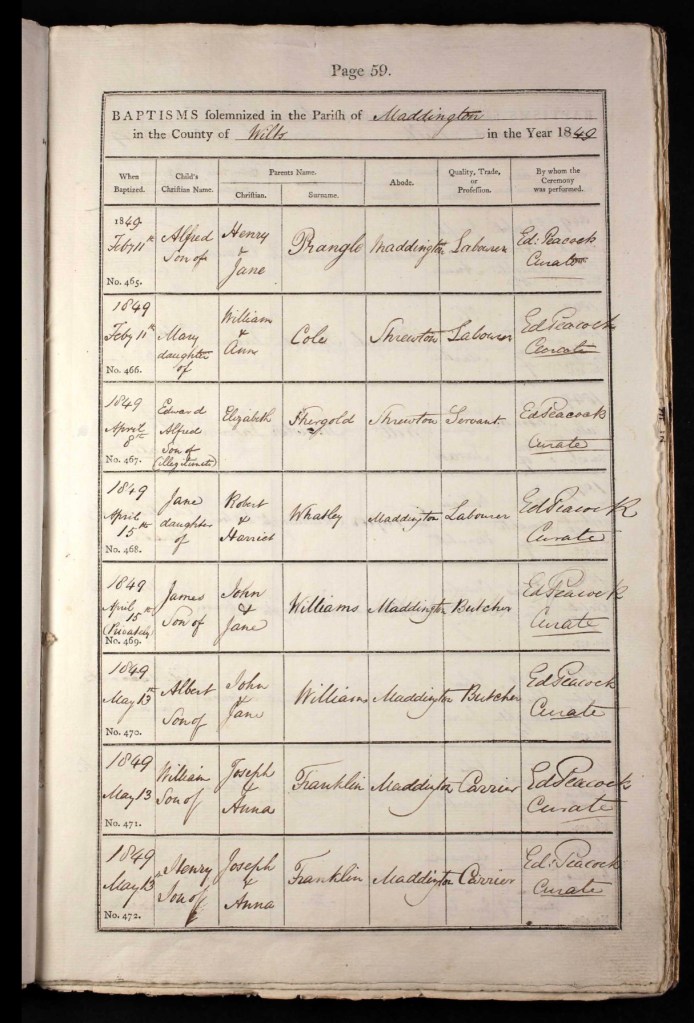 Page 59.
BAPTISMS solemnized in the Parish of Maddington
in the County of Wilts in the Year 1849
When Baptized.
Child's Christian Name.
Parents Name.
Christian.
Surname.
Abode.
Quality, Trade, or Profession.
By whom the Ceremony was performed.
1849
Feby 11th
No. 465.
Alfred
Son of
Henry
&
Jane
Prangle
Maddington
Labourer
Ed: Peacock
Curate
1849
Feby 11th
No. 466.
Mary
daughter
of
William
&
Ann
Cole
Shrewton
Labourer
Ed Peacock
Curate
1849
April
8th
No. 467.
Edward
Alfred
Son of
(illegitimate)
Elizabeth
Shrewton
Servant
Ed Peacock
Curate
1849
April
15th
No. 468.
Jane
daughter
of
Robert
&
Harriet
Whatley
Maddington
Labourer
Ed Peacock
Curate
1849
April
15th
(Privately)
No. 469.
James
Son of
John
&
Jane
Williams
Maddington
Butcher
Ed Peacock
Curate
1849
May 13th
No. 470.
Albert
Son of
John
&
Jane
Williams
Maddington
Butcher
Ed Peacock
Curate
1849
May 13
No. 471.
William
Son of
Joseph
&
Anna
Franklin
Maddington
Carrier
Ed Peacock
Curate
1849
May 13
No. 472.
Henry
Son of
Joseph
&
Anna
Franklin
Maddington
Carrier
Ed: Peacock
Curate